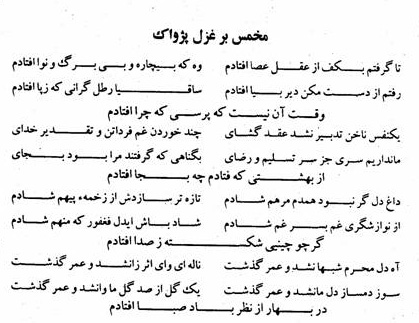 مخمس بر غزل پژواک
تا گرفتم بکف از عقل عصا افتادم وه که بیچاره و بی برگ و نوا افتادم
رفتم از دست مکن دیر بیا افتادم ساقیا رطل گرانی که زپا افتادم
وقت آن نیست که پرسی که چرا افتادم
یکنفس ناخن تدبیر نشد عقد گشای چند خوردن غم فرداتن و تقدیر خدای
مانداریم سری جز سر تسلیم و رضای بگناهی که گرفتند مرا بود بجای
از بهشتی که فتادم چه بجا افتادم
داغ دل گر نبود همدم مرهم شادم تازه تر سازدش از زخمه پیهم شادم
از نوازشگری غم بسر غم شادم شاد باش ایدل فغفور که منهم شادم
گرچو چینیی شکسته ز صدا افتادم
آه دل محرم شبها نشد و عمر گذشت ناله ای وای اثر زانشد و عمر گذشت
سوز دمساز دل مانشد و عمر گذشت یک گل از صد گل ما وانشد و عمر گذشت
در بهار از نظر باد صبا افتادم